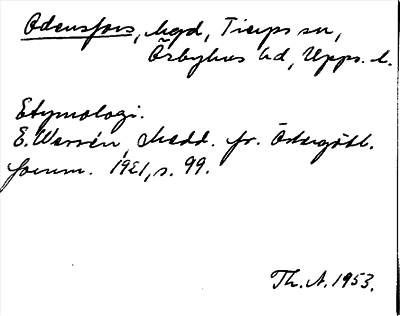 Odensfors, hgd, Tierps sn,
Örbyhus hd, Upps. l.
Etymologi.
E. Wersén, Medd. fr. Östergötl.
fornm. 1921, s. 99.
Th. A. 1953.